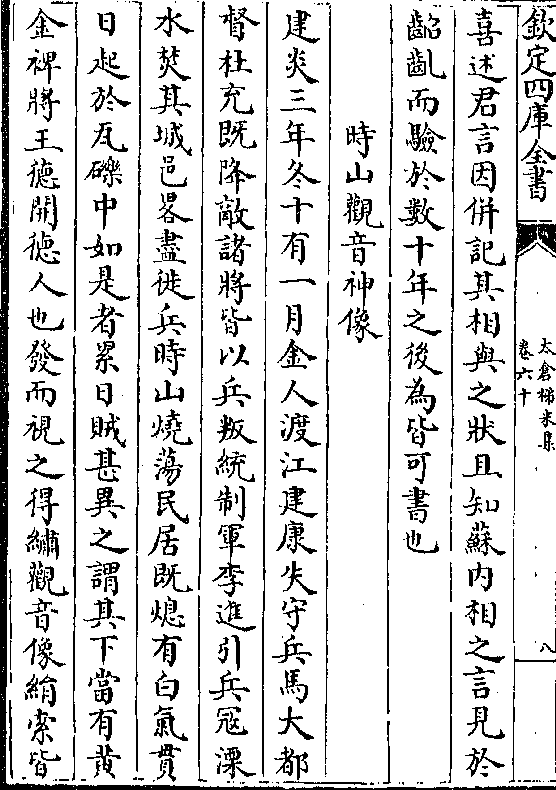 欽定四庫全書
太倉稊米集
卷六十
八
喜述君言因併記其相與之狀且知蘇内相之言見於
齠齓而驗於數十年之後為皆可書也
時山觀音神像
建炎三年冬十有一月金人渡江建康失守兵馬大都
督杜充既降敵諸將皆以兵叛統制軍李進引兵冦溧
水焚其城邑畧盡徙兵時山燒蕩民居既熄有白氣貫
日起於瓦礫中如是者累日賊甚異之謂其下當有黄
金裨將王德開德人也發而視之得繡觀音像絹索皆